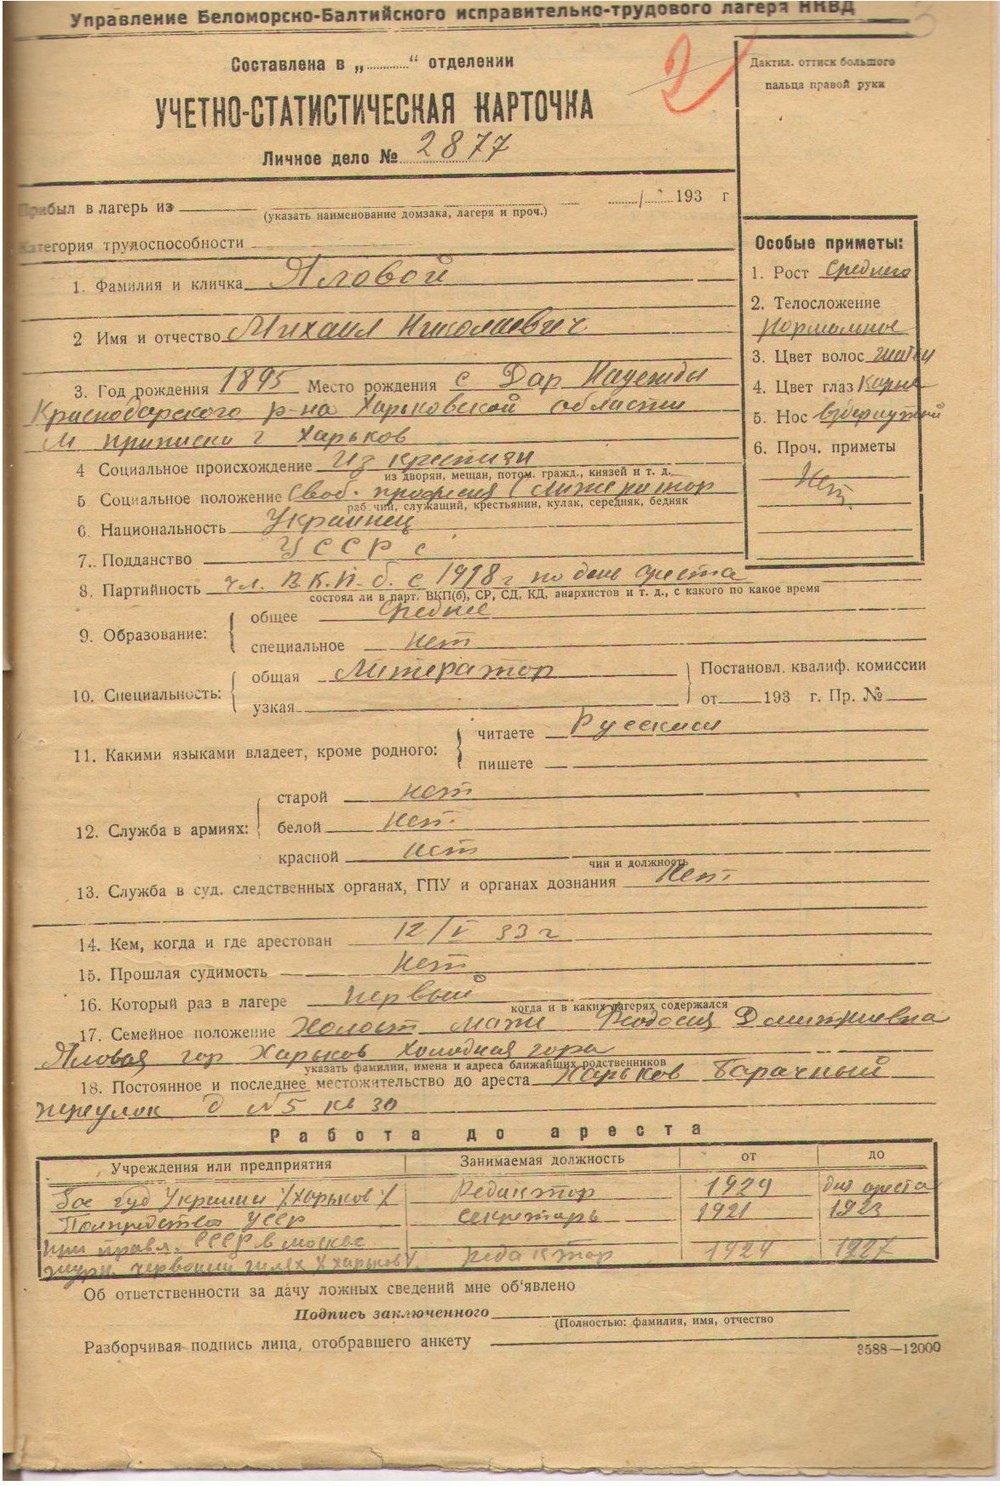 Управление Беломорско-Балтийского исправительно-трудового лагеря НКВД
3
Составлена в „..........“ отделении
2
УЧЕТНО-СТАТИСТИЧЕСКАЯ КАРТОЧКА
Личное дело № 2877
Дактил. оттиск большого
пальца правой руки
Прибыл в лагерь из 193 г
(указать наименование домзака, лагеря и проч.)
Категория трудоспособности
1. Фамилия и кличка Яловой
2 Имя и отчество Михаил Николаевич
3. Год рождения 1895 Место рождения с Дар Надежды
Краснодарского р-на Харьковской области
М приписки г Харьков
Особые приметы:
1. Рост Среднего
2. Телосложение
нормальное
3. Цвет волос
4. Цвет глаз Карие
5. Нос
6. Проч. приметы
Нет
4 Социальное происхождение Из крестьян
из дворян, мещан, потом. гражд., князей и т. д.
5 Социальное положение Своб. профессия (литератор
раб чий, служащий, крестьянин, кулак, середняк, бедняк
6. Национальность Украинец
7. Подданство УССР
8. Партийность чл. В.К.П.б. с 1918 г по день ареста
состоял ли в парт. ВКП(б), СР, СД, КД, анархистов и т. д., с какого по какое время
9. Образование: общее Среднее
специальное нет
10. Специальность: общая Литератор
узкая
Постановл. квалиф. комиссии
от 193 г. Пр. №
11. Какими языками владеет, кроме родного: читаете Русский
пишете
12. Служба в армиях: старой нет
белой нет
красной нет
чин и должность
13. Служба в суд. следственных органах, ГПУ и органах дознания Нет
14. Кем, когда и где арестован 12/V 33 г
15. Прошлая судимость Нет
16. Который раз в лагере первый
когда и в каких лагерях содержался
17. Семейное положение Холост мать Феодосия Дмитриевна
Яловая гор Харьков Холодная гора
указать фамилии, имена и адреса ближайших родственников
18. Постоянное и последнее местожительство до ареста Харьков Барачный
переулок д №5 кв 30
Работа до ареста
Учреждения или предприятия Занимаемая должность от до
Украины /Харьков/ Редактор 1929 дня ареста
Полпредство УССР секретарь 1921 1923
при правл. СССР в Москве
журн. червоний шлях /харьков/ редактор 1924 1927
Об ответственности за дачу ложных сведений мне об'явлено
Подпись заключенного
(Полностью: фамилия, имя, отчество
Разборчивая подпись лица, отобравшего анкету
3588—12000